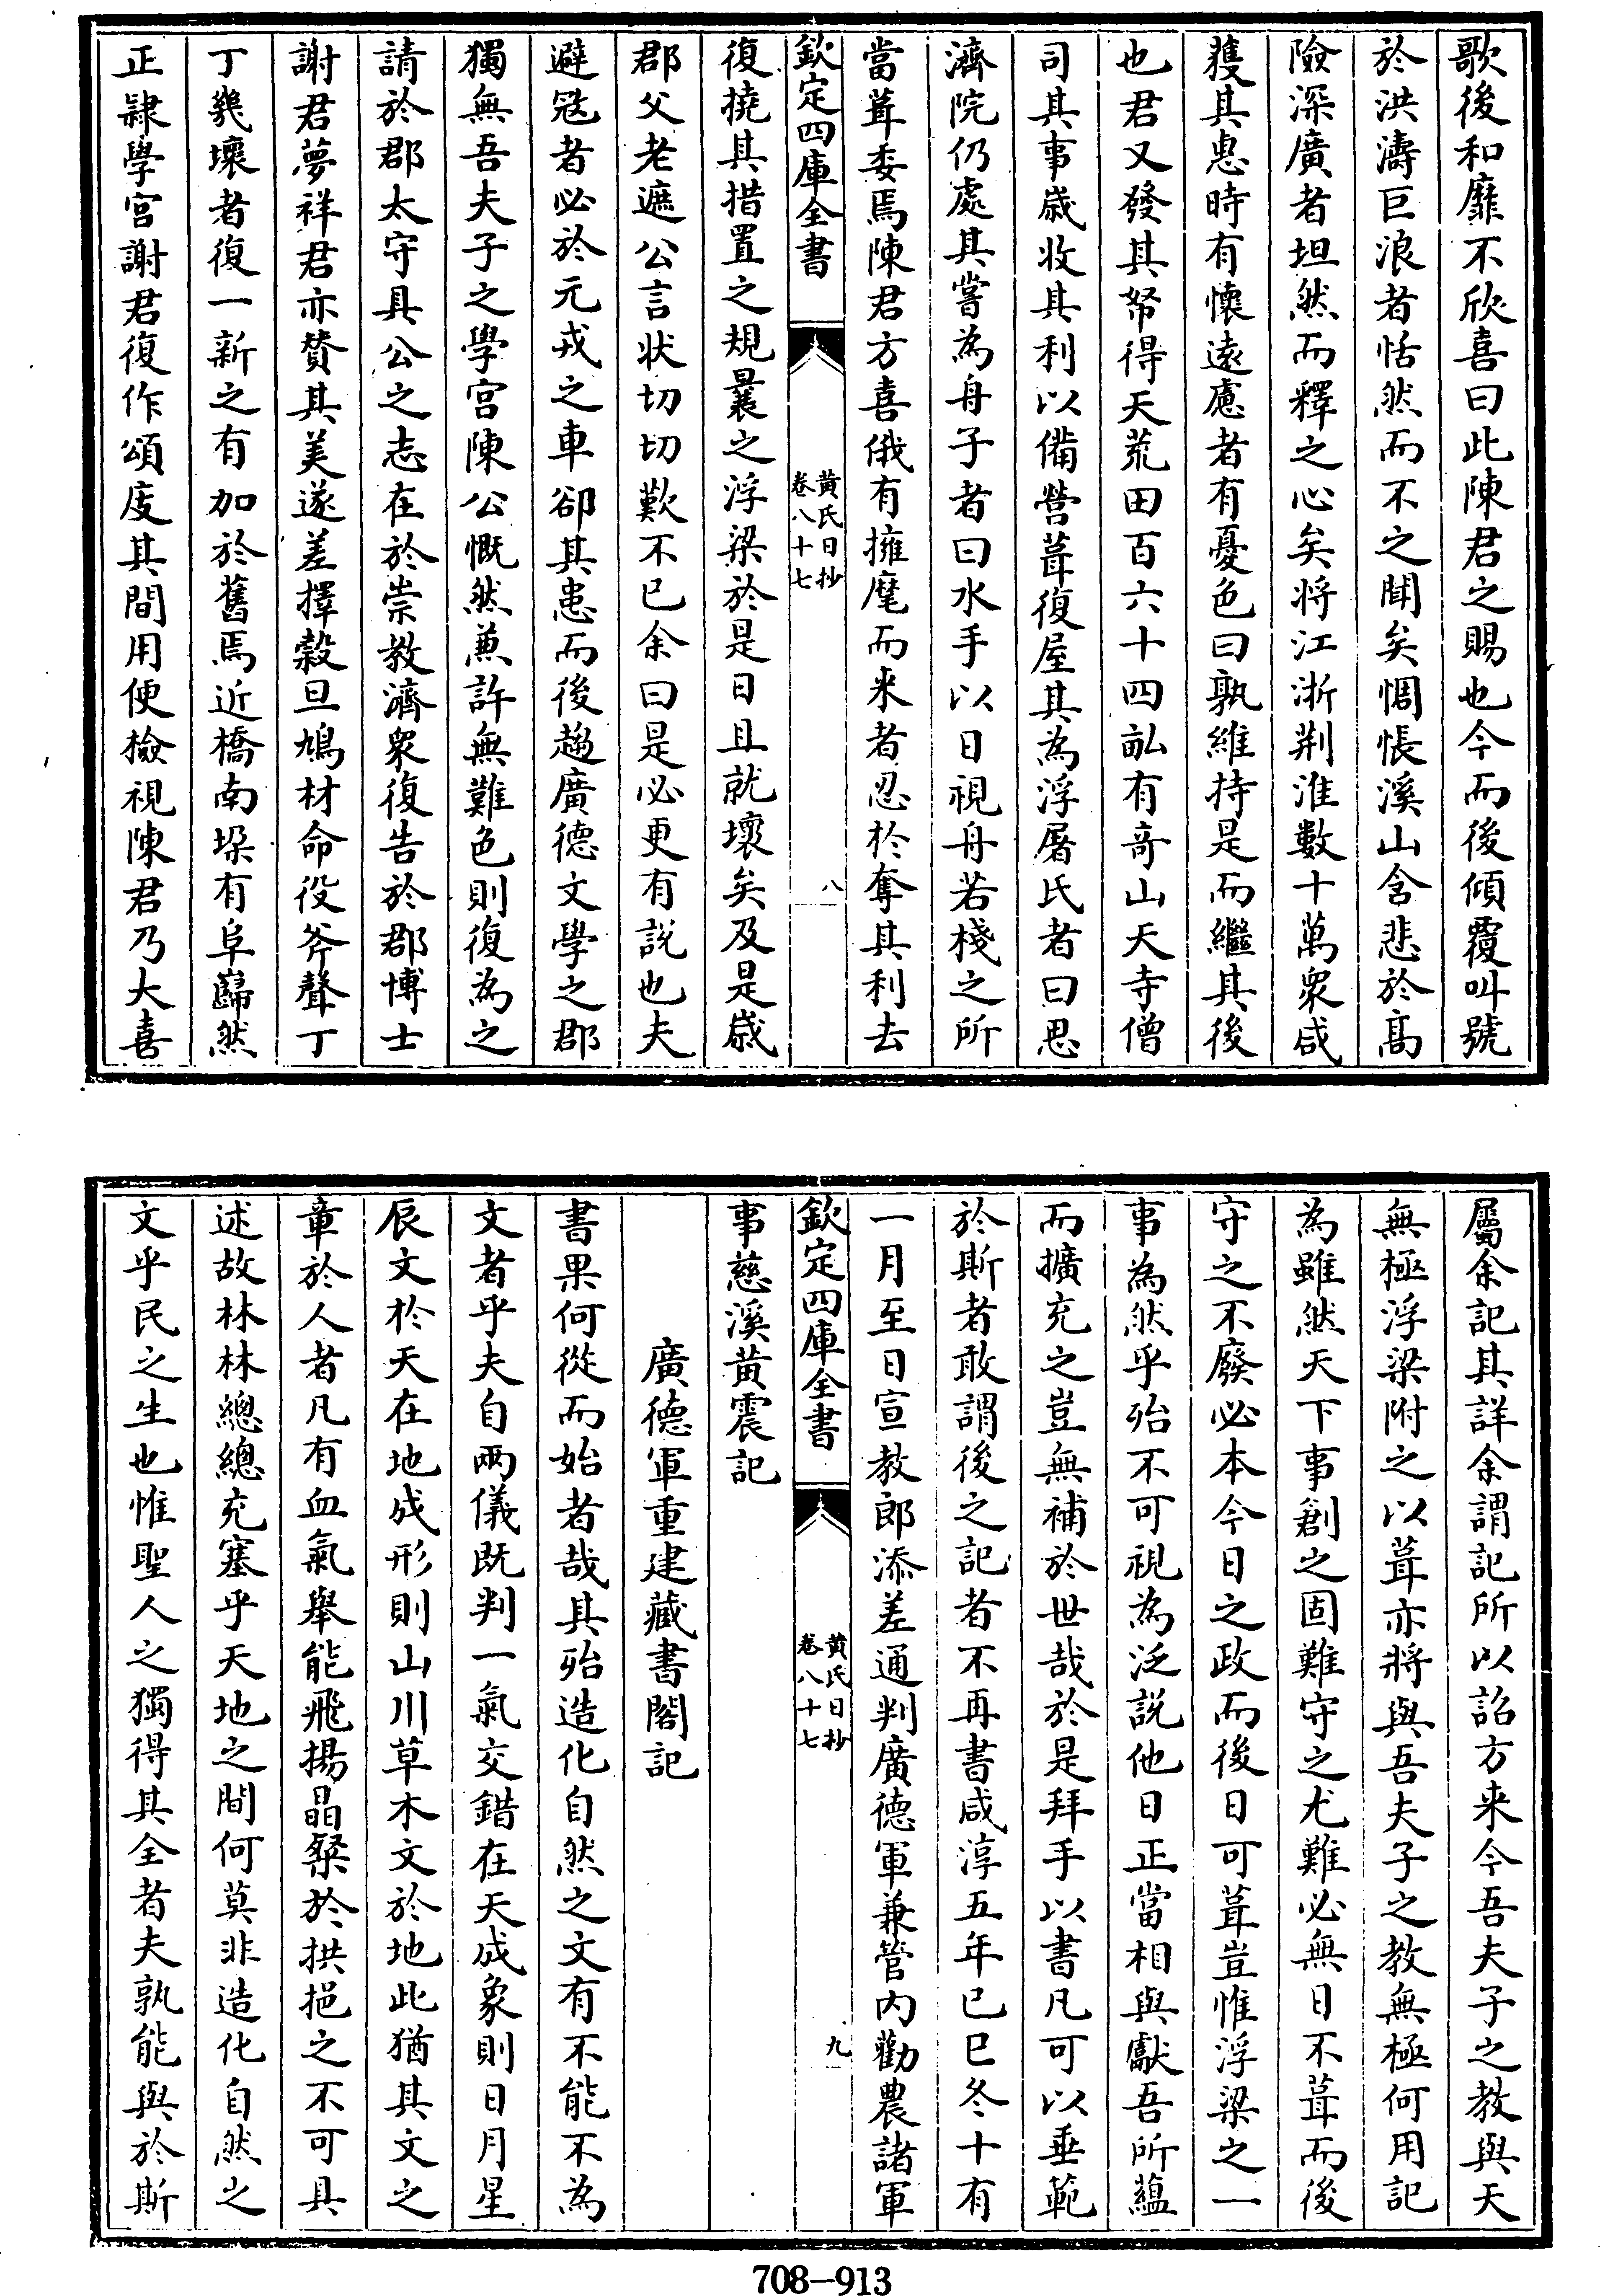 歌後和靡不欣喜曰此陳君之賜也今而後傾覆叫號
於洪濤巨浪者恬然而不之聞矣惆悵溪山含悲於高
險深廣者坦然而釋之心矣将江浙荆淮數十萬衆咸
䕶其惠時有懐遠慮者有憂色曰孰維持是而繼其後
也君又發其帑得天荒田百六十四畝有奇山天寺僧
司其事歳收其利以備營葺復屋其為浮屠氏者曰思
濟院仍處其嘗為舟子者曰水手以日視舟若棧之所
當葺委焉陳君方喜俄有擁麾而来者忍於奪其利去
欽定四庫全書
黄氏日抄
卷八十七
八
復撓其措置之規曩之浮梁於是日且就壞矣及是歳
郡父老遮公言状切切歎不已余曰是必更有説也夫
避冦者必於元戎之車卻其患而後趨廣德文學之郡
獨無吾夫子之學宫陳公慨然兼許無難色則復為之
請於郡太守具公之志在於崇教濟衆復告於郡博士
謝君夢祥君亦賛其美遂差擇榖旦鳩材命役斧聲丁
丁幾壞者復一新之有加於舊焉近橋南垜有阜巋然
正隷學宫謝君復作頌度其間用便檢視陳君乃大喜
屬余記其詳余謂記所以詔方来今吾夫子之教與天
無極浮梁附之以葺亦將與吾夫子之教無極何用記
為雖然天下事創之固難守之尤難必無日不葺而後
守之不廢必本今日之政而後日可葺豈惟浮梁之一
事為然乎殆不可視為泛説他日正當相與獻吾所藴
而擴充之豈無補於世哉於是拜手以書凡可以垂範
於斯者敢謂後之記者不再書咸淳五年已巳冬十有
一月至日宣教郎添差通判廣德軍兼管内勸農諸軍
欽定四庫全書
黄氏日抄
卷八十七
九
事慈溪黄震記
廣德軍重建藏書閣記
書果何從而始者哉其殆造化自然之文有不能不為
文者乎夫自兩儀既判一氣交錯在天成象則日月星
辰文於天在地成形則山川草木文於地此猶其文之
章於人者凡有血氣舉能飛揚晶粲於拱挹之不可具
述故林林總總充塞乎天地之間何莫非造化自然之
文乎民之生也惟聖人之獨得其全者夫孰能與於斯
708-913